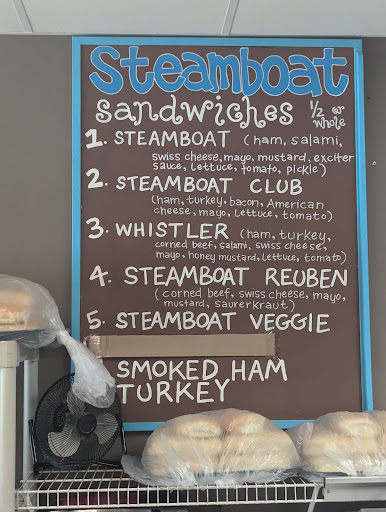 Steamboat
sandwiches 1/2 or whole
1. STEAMBOAT (ham, salami,
swiss cheese, mayo, mustard, exciter
sauce, lettuce, tomato, pickle)
2. STEAMBOAT CLUB
(ham, turkey, bacon, American
cheese, mayo, lettuce, tomato)
3. WHISTLER (ham, turkey,
corned beef, salami, swiss cheese,
mayo, honey mustard, lettuce, tomato)
4. STEAMBOAT REUBEN
(corned beef, swiss cheese, mayo,
mustard, saurerkraut)
5. STEAMBOAT VEGGIE
SMOKED HAM
TURKEY